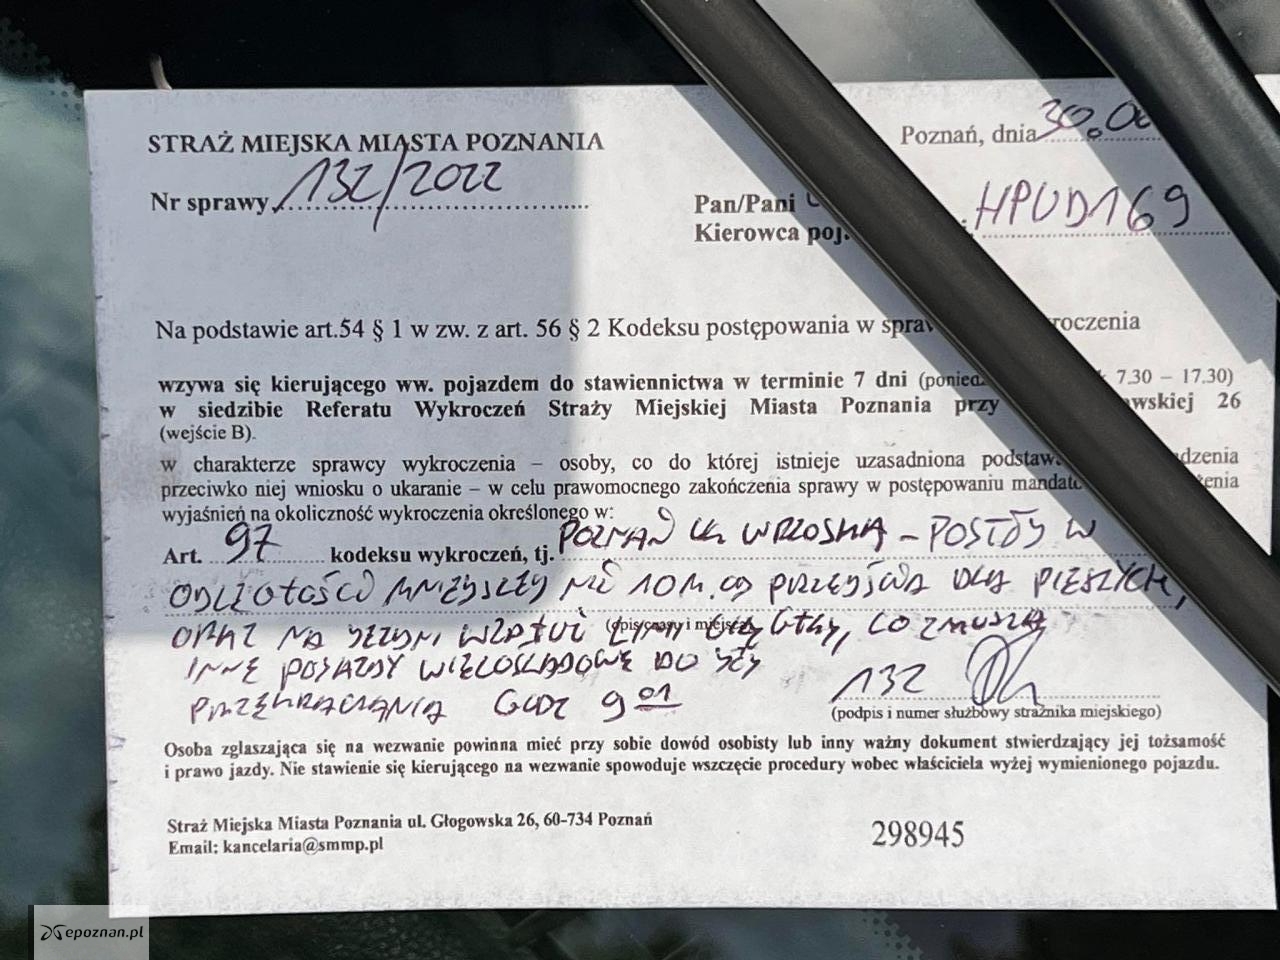 STRAŻ MIEJSKA MIASTA POZNANIA
Poznań, dnia 30.06
Nr sprawy 132/2022
Pan/Pani
Kierowca poj. HPUD169
Na podstawie art.54 § 1 w zw. z art. 56 § 2 Kodeksu postępowania w
wzywa się kierującego ww. pojazdem do stawiennictwa w terminie 7 dni 7.30 – 17.30)
w siedzibie Referatu Wykroczeń Straży Miejskiej Miasta Poznania przy 26
(wejście B).
w charakterze sprawcy wykroczenia – osoby, co do której istnieje uzasadniona
przeciwko niej wniosku o ukaranie – w celu prawomocnego zakończenia sprawy w postępowaniu
wyjaśnień na okoliczność wykroczenia określonego w:
Art. 97 kodeksu wykroczeń, tj. POZNAŃ UL WRZOSKA – POSTÓJ W
ODLEGŁOŚCI MNIEJSZEJ NIŻ 10 M. OD PRZEJŚCIA DLA PIESZYCH,
ORAZ NA JEZDNI WZDŁUŻ LINII CIĄGŁEJ, CO ZMUSZA
(opis czasu i miejsca)
INNE POJAZDY WIELOŚLADOWE DO JEJ
PRZEKRACZANIA GODZ 9 01
132
(podpis i numer służbowy strażnika miejskiego)
Osoba zgłaszająca się na wezwanie powinna mieć przy sobie dowód osobisty lub inny ważny dokument stwierdzający jej tożsamość
i prawo jazdy. Nie stawienie się kierującego na wezwanie spowoduje wszczęcie procedury wobec właściciela wyżej wymienionego pojazdu.
Straż Miejska Miasta Poznania ul. Głogowska 26, 60-734 Poznań
Email: kancelaria@smmp.pl
298945
epoznan.pl